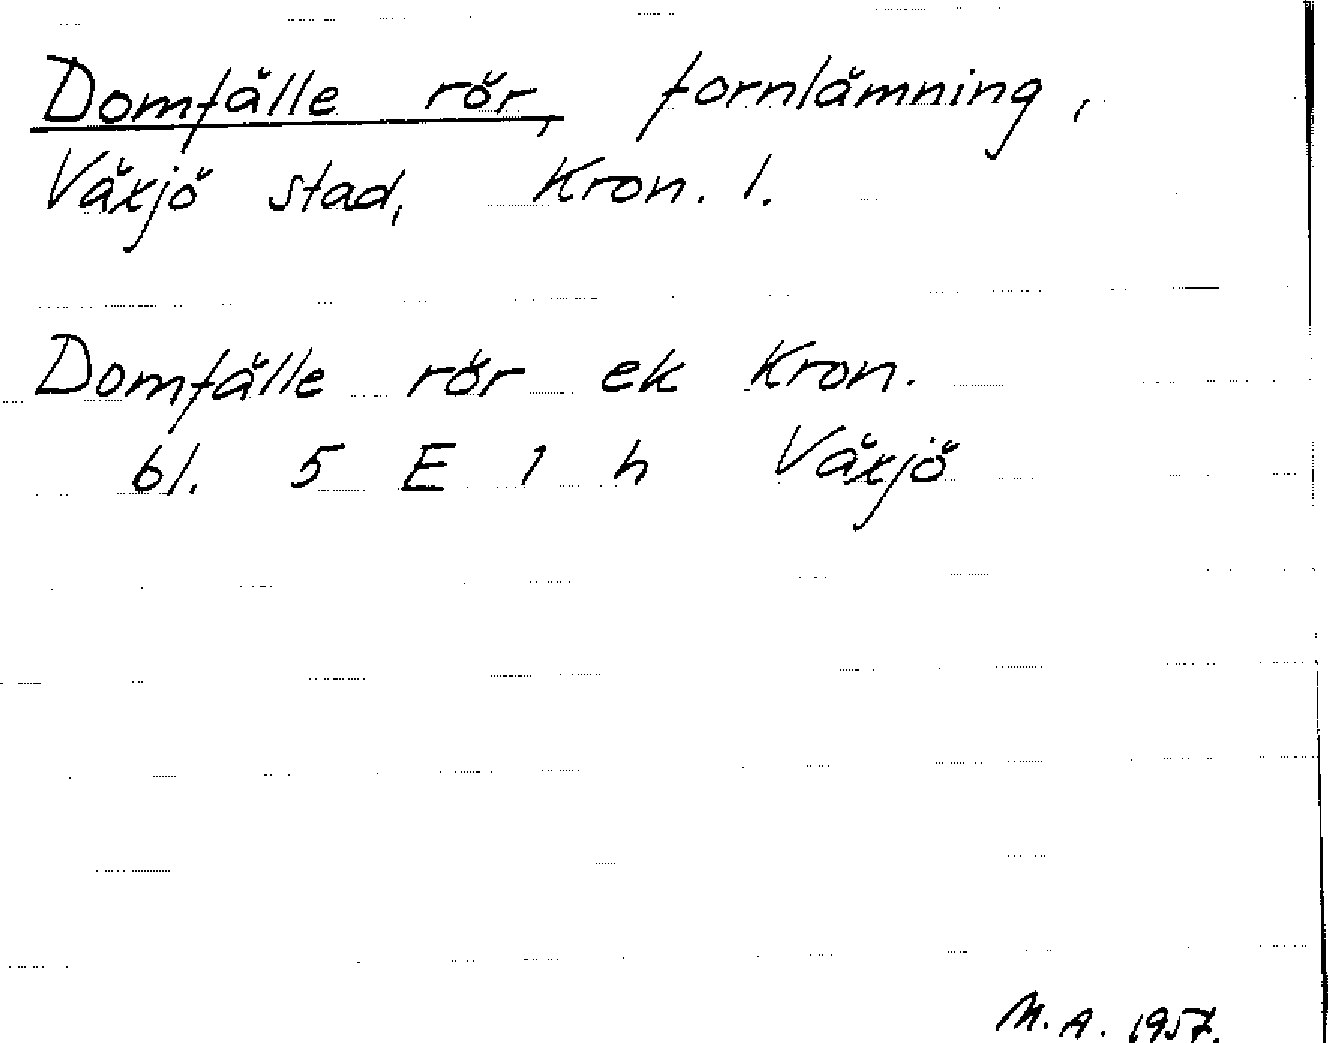 Domfälle rör, fornlämning,
Växjö stad, Kron. l.
Domfälle rör ek Kron.
bl. 5 E 1 h Växjö
M.A. 1957.